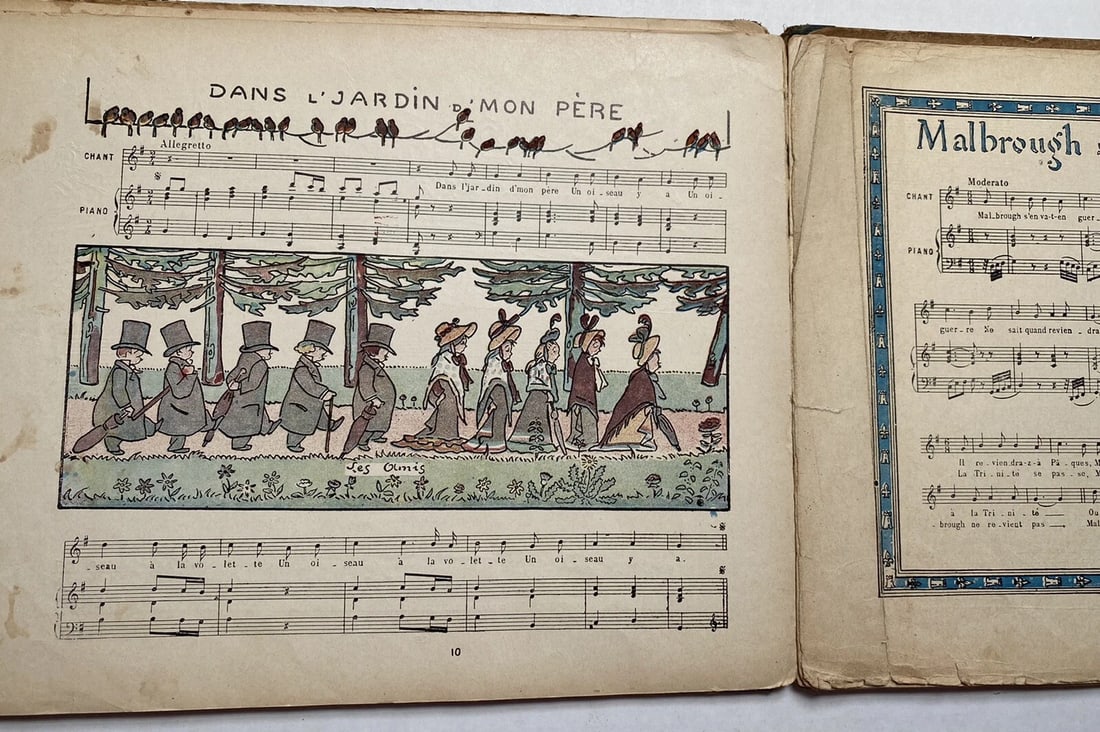 DANS L'JARDIN D'MON PÈRE
Allegretto
CHANT
Dans l'jar_din d'mon père Un oi_seau y a Un oi_
PIANO
Les Amis
_seau à la vo_let_te Un oi_seau à la vo_let_te Un oi_seau y a.
10
Malbrough
Moderato
CHANT
Mal_brough s'en va-t-en guer_
PIANO
guer_re Ne sait quand revien_dra
Il re_vien_dra-z-à Pâ_ques,
La Tri_ni_té se pas_se,
à la Tri_ni_té
_brough ne re_vient pas